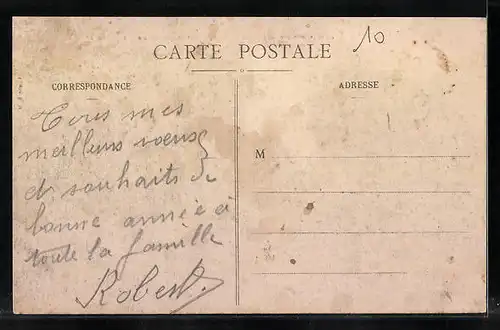 10
CARTE POSTALE
CORRESPONDANCE
ADRESSE
Tous mes
meilleurs voeux
et souhaits de
bonne année à
toute la famille
Robert.
M